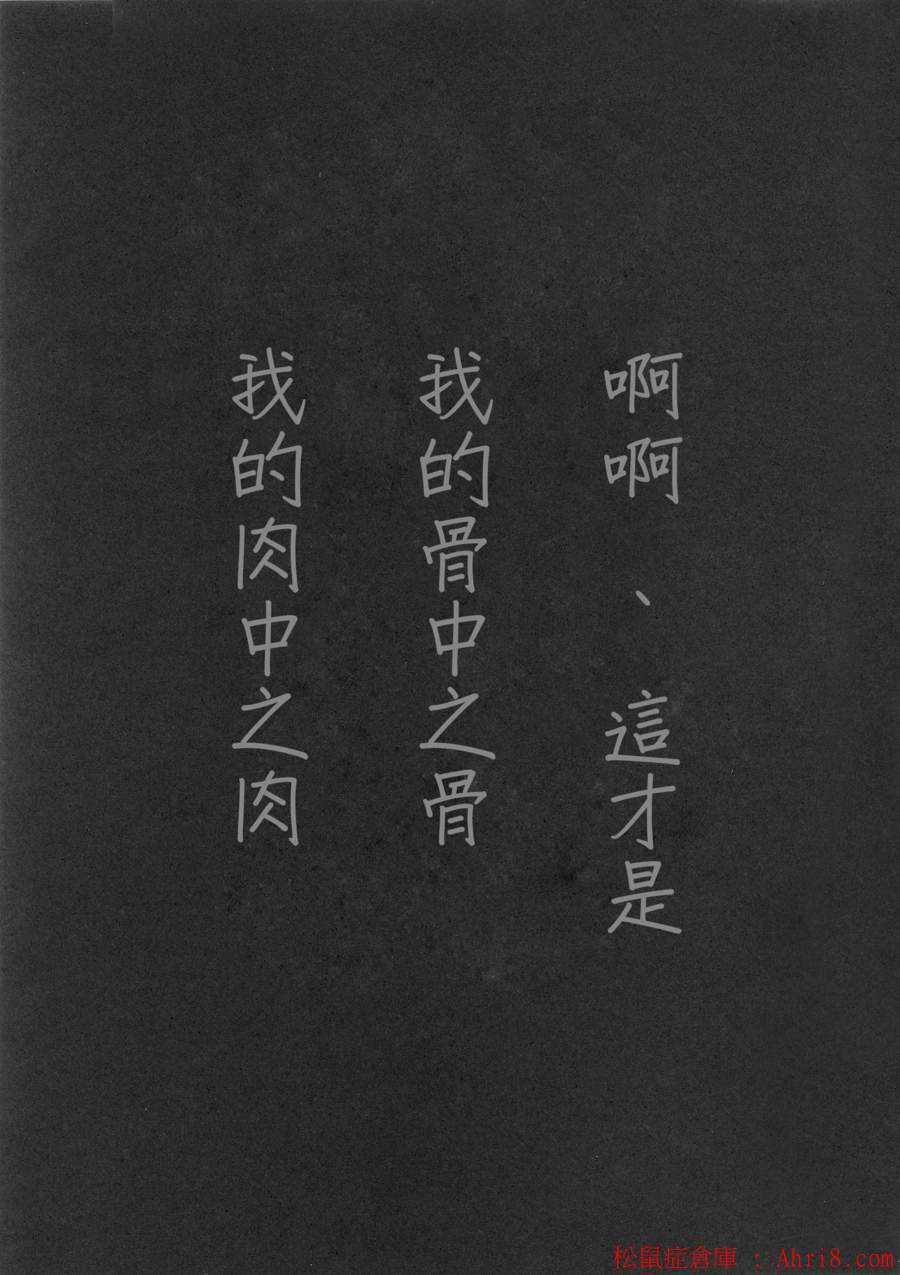 啊啊、這才是
我的骨中之骨
我的肉中之肉
松鼠症倉庫 : Ahri8.com